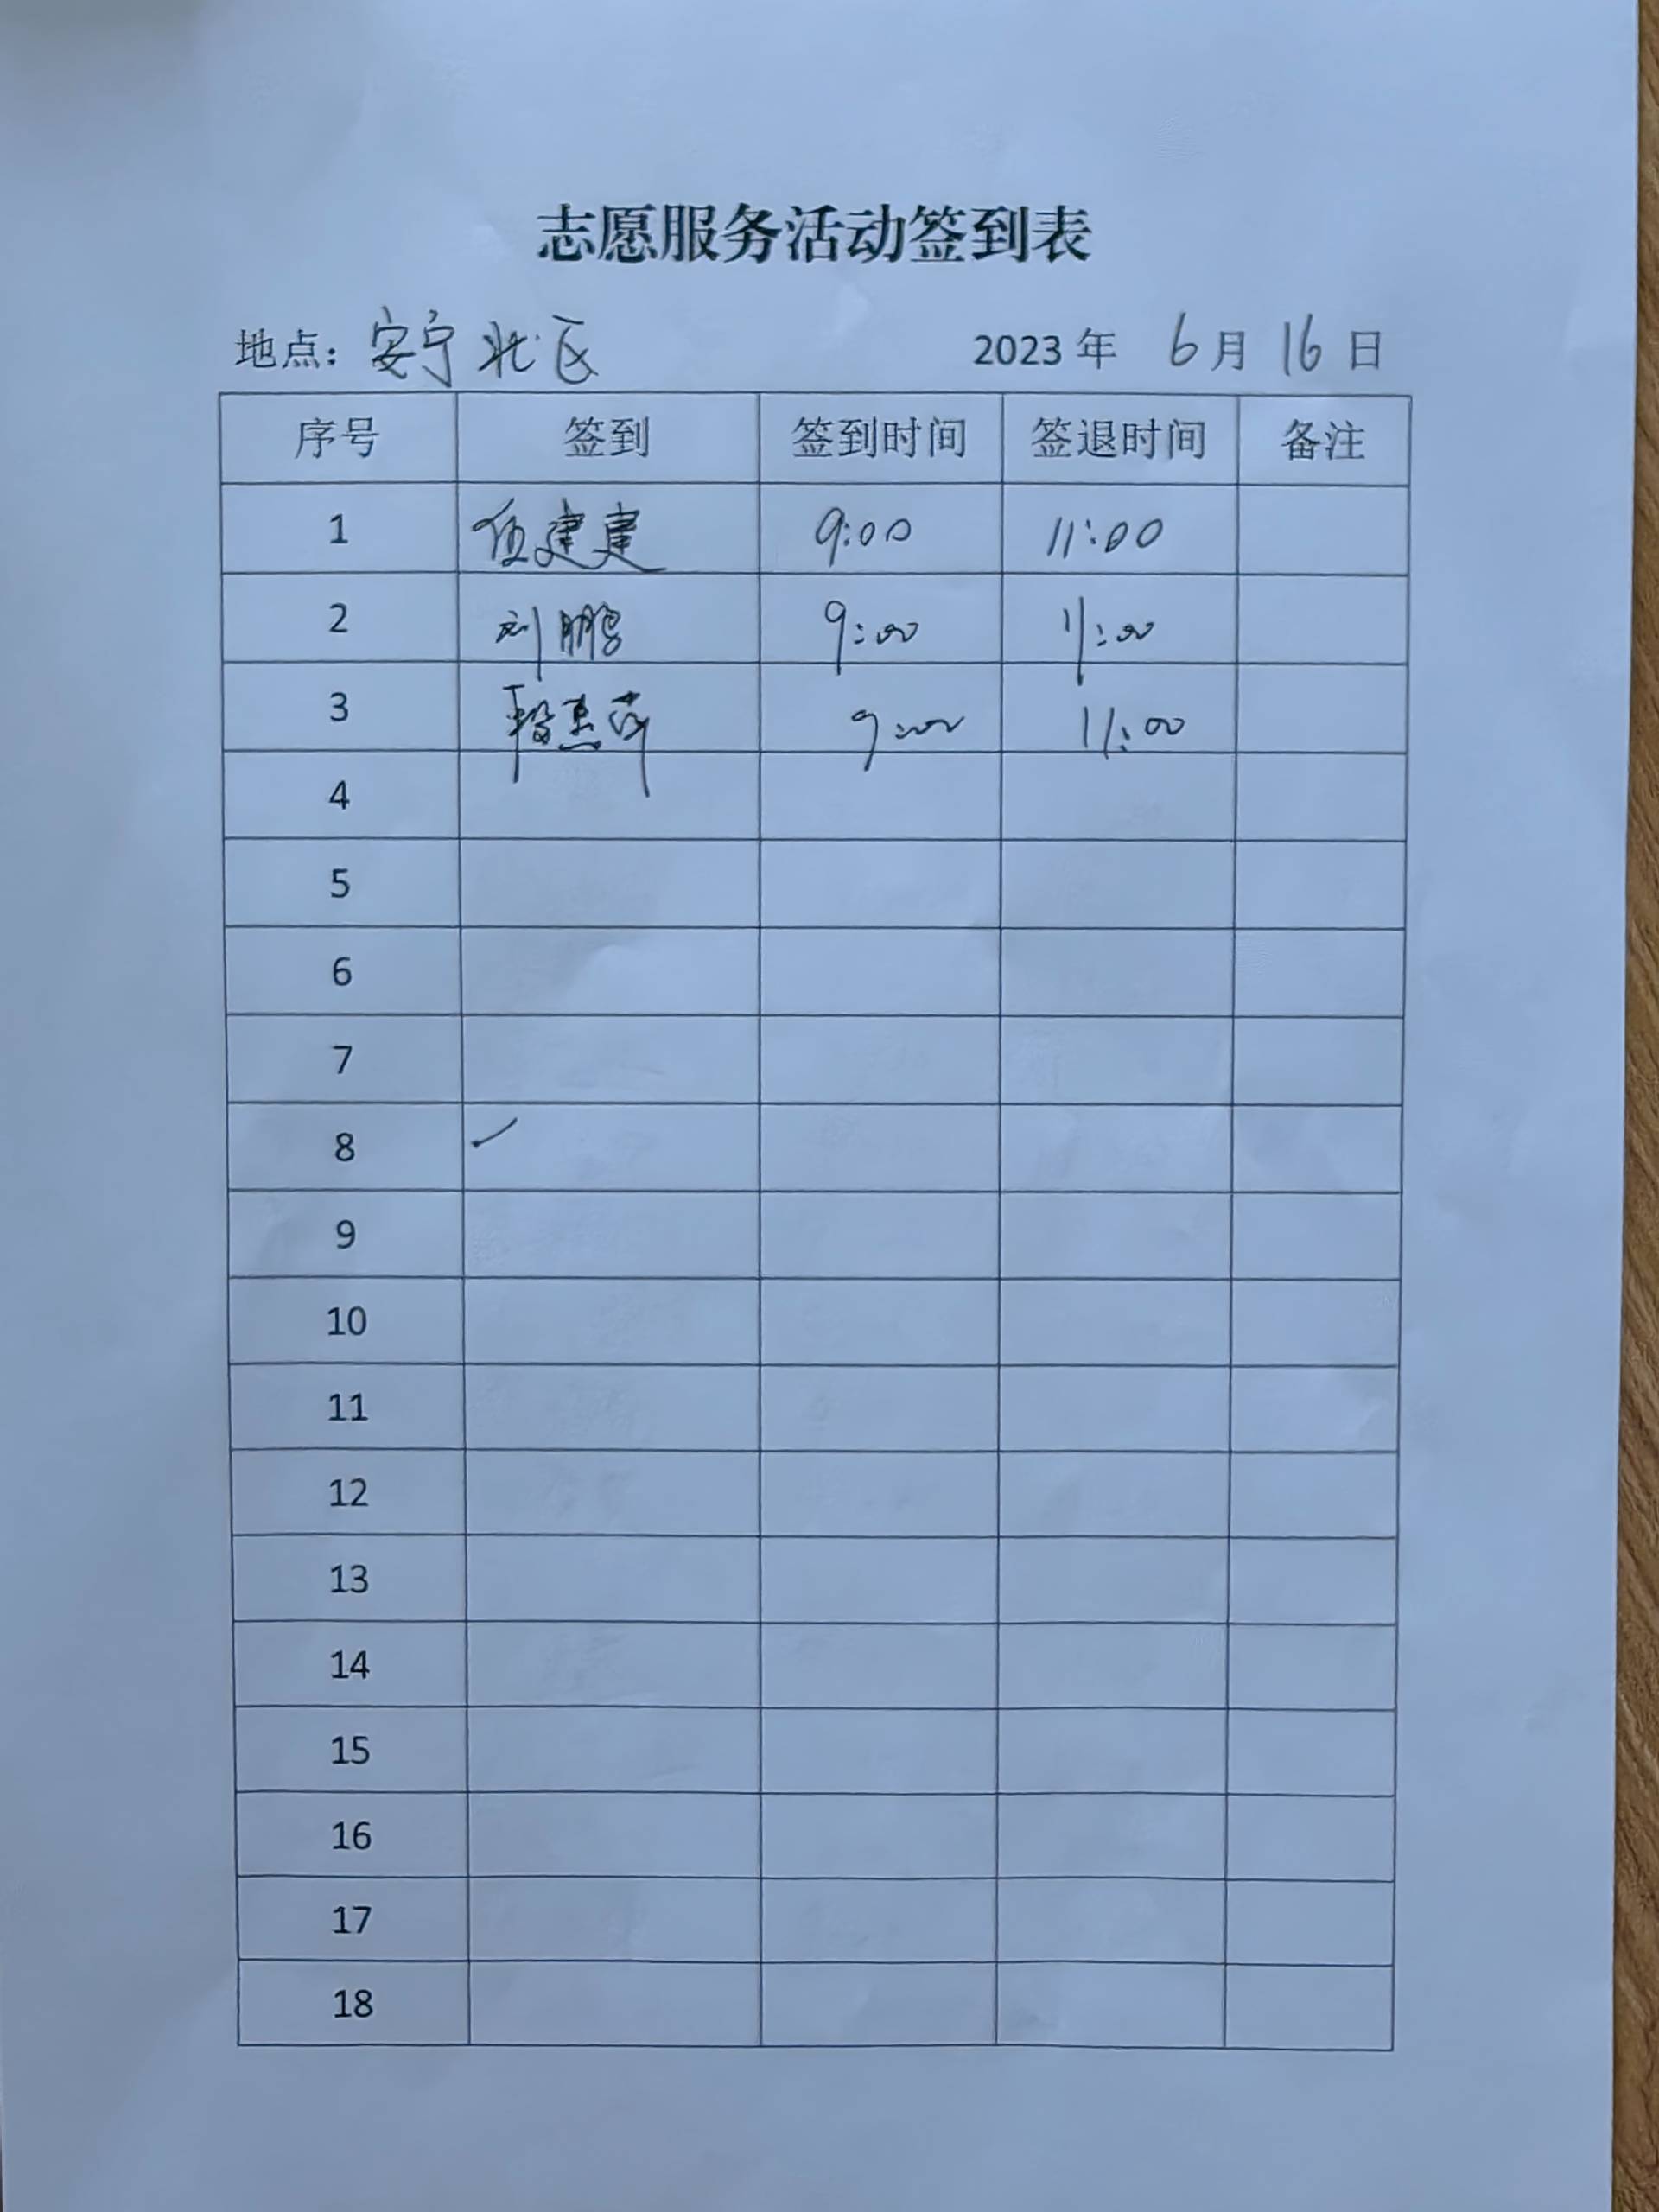 志愿服务活动签到表
地点：安宁北区 2023 年 6 月 16 日
序号 签到 签到时间 签退时间 备注
1 伍建建 9:00 11:00
2 刘鹏 9:00 11:00
3 9:00 11:00
4
5
6
7
8
9
10
11
12
13
14
15
16
17
18